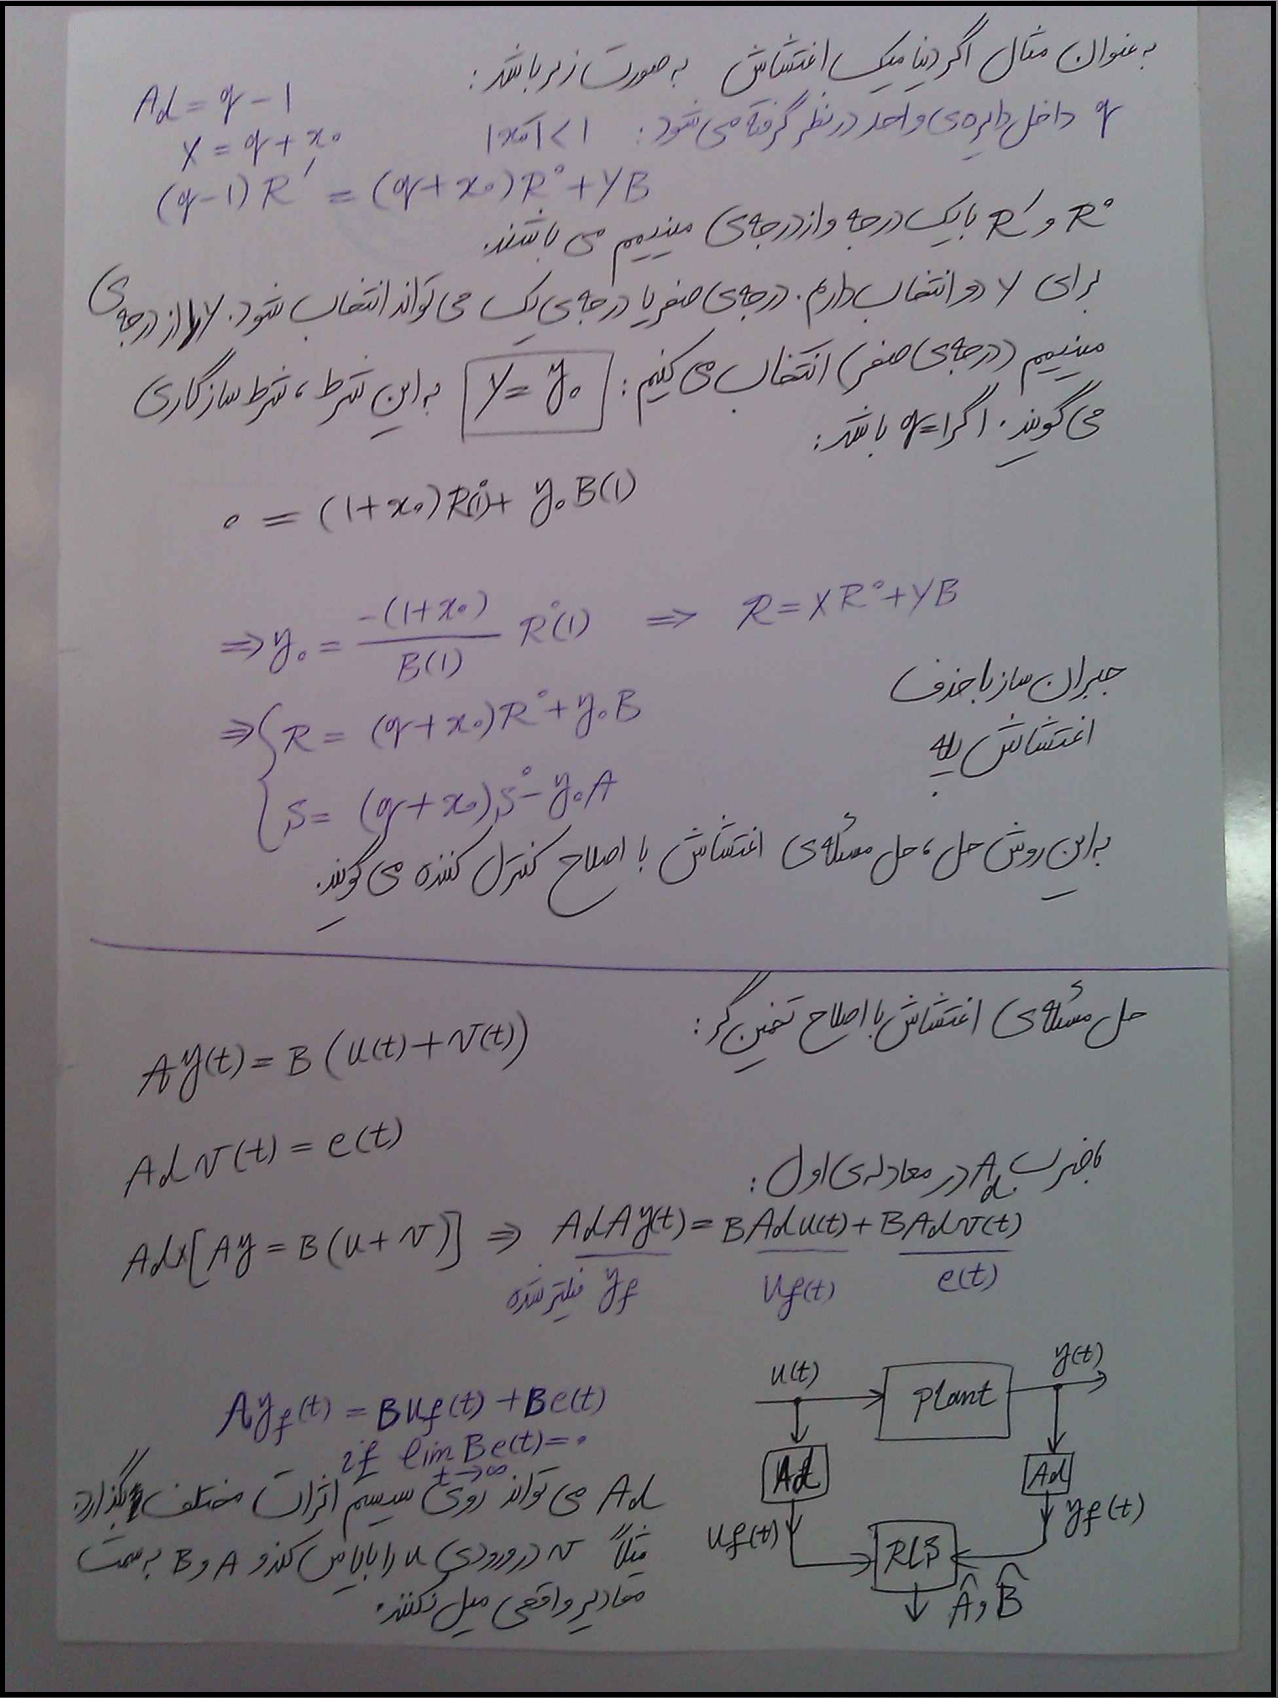 به عنوان مثال اگر دینامیک اغتشاش به صورت زیر باشد:
Ad = q - 1
q داخل دایره‌ی واحد در نظر گرفته می‌شود: |x₀| < 1
X = q + x₀
(q-1) R' = (q + x₀) R° + YB
R° و R' با یک درجه و از درجه‌ی مینیمم می باشند.
برای Y دو انتخاب داریم. درجه‌ی صفر یا درجه‌ی یک می تواند انتخاب شود. Y را از درجه‌ی
مینیمم (درجه‌ی صفر) انتخاب می کنیم: Y = y₀ به این شرط، شرط سازگاری
می گویند. اگر q=1 باشد:
0 = (1+x₀) R°(1) + y₀ B(1)
⇒ y₀ = -(1+x₀) / B(1) R°(1) ⇒ R = X R° + YB
جبران ساز با حذف
اغتشاش پله
⇒ { R = (q + x₀) R° + y₀ B
S = (q + x₀) S° - y₀ A
به این روش حل، حل مسئله‌ی اغتشاش با اصلاح کنترل کننده می گویند.
حل مسئله‌ی اغتشاش با اصلاح تخمین گر:
A y(t) = B (u(t) + v(t))
Ad v(t) = e(t)
با ضرب Ad در معادله‌ی اول:
Ad × [Ay = B(u + v)] ⇒ Ad A y(t) = B Ad u(t) + B Ad v(t)
فیلتر شده yf uf(t) e(t)
A yf(t) = B uf(t) + B e(t)
if lim Be(t) = 0
t→∞
Ad می تواند روی سیستم اثرات مختلف بگذارد
مثلاً v در ورودی u را بایاس کند و A و B به سمت
مقادیر واقعی میل نکنند.
u(t) Plant y(t)
Ad Ad
uf(t) RLS yf(t)
Â و B̂